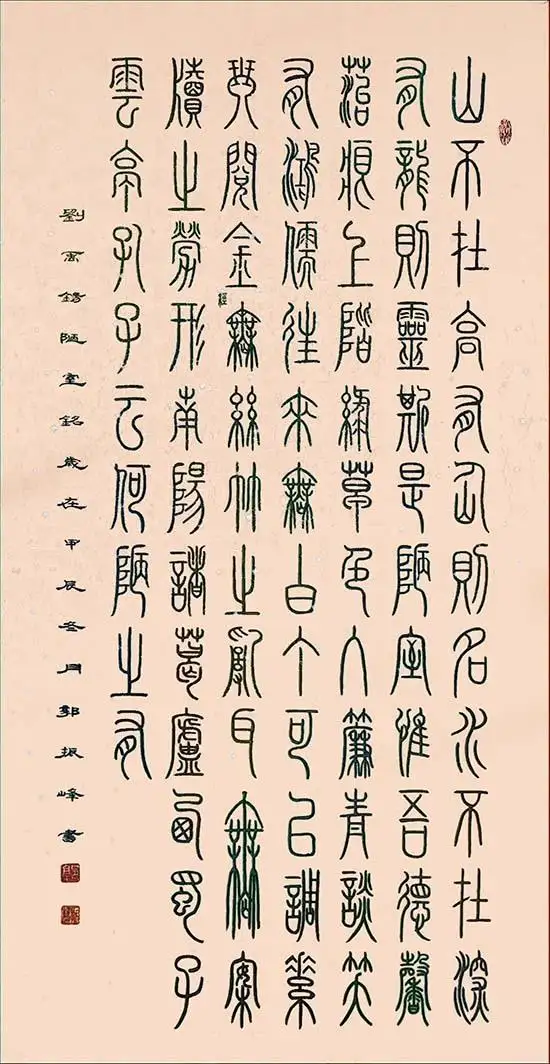 山不在高有仙則名水不在深
有龍則靈斯是陋室惟吾德馨
苔痕上階綠草色入簾青談笑
有鴻儒往來無白丁可以調素
琴閱金經無絲竹之亂耳無案
牘之勞形南陽諸葛廬西蜀子
雲亭孔子云何陋之有
劉禹錫陋室銘歲在甲辰冬月郭振峰書